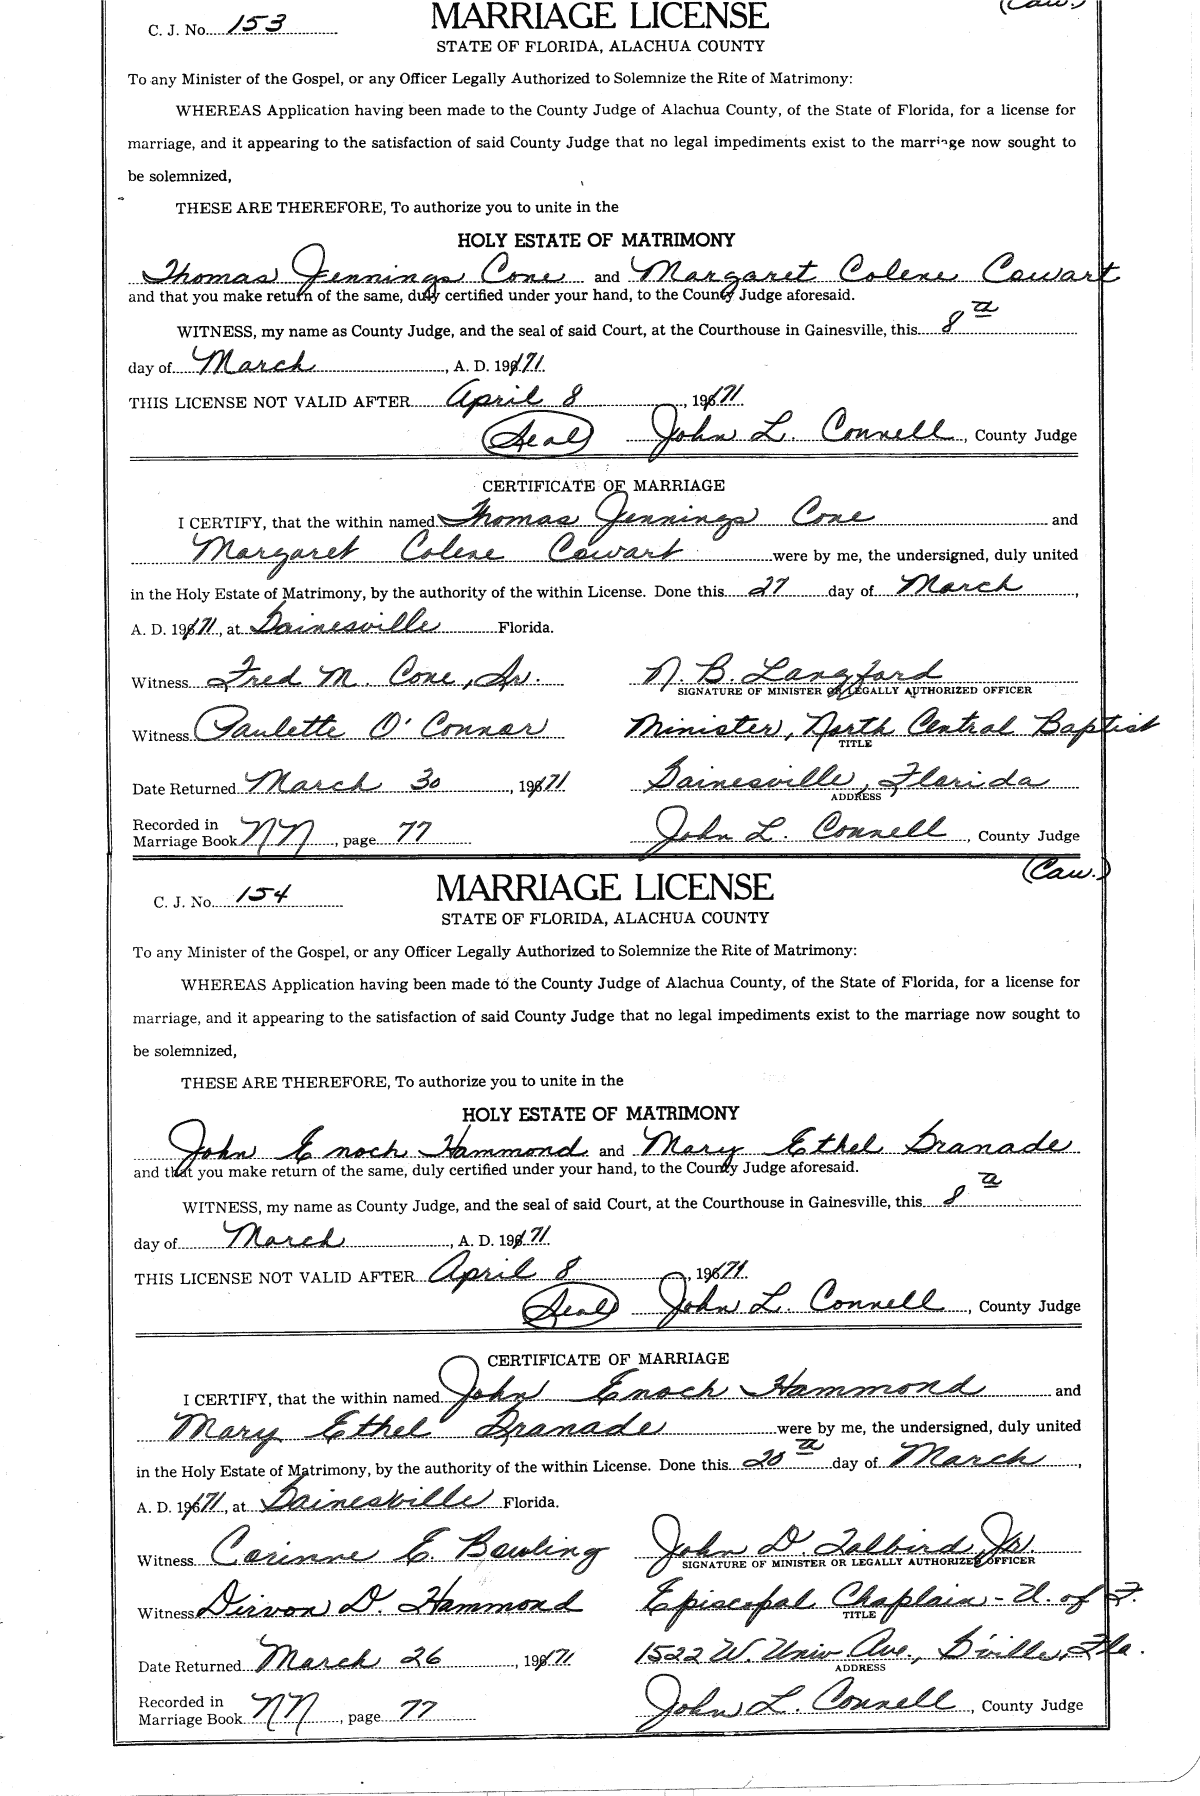 (Caw.)
C. J. No. 153 MARRIAGE LICENSE
STATE OF FLORIDA, ALACHUA COUNTY
To any Minister of the Gospel, or any Officer Legally Authorized to Solemnize the Rite of Matrimony:
WHEREAS Application having been made to the County Judge of Alachua County, of the State of Florida, for a license for
marriage, and it appearing to the satisfaction of said County Judge that no legal impediments exist to the marriage now sought to
be solemnized,
THESE ARE THEREFORE, To authorize you to unite in the
HOLY ESTATE OF MATRIMONY
Thomas Jennings Cone and Margaret Colene Cowart
and that you make return of the same, duly certified under your hand, to the County Judge aforesaid.
WITNESS, my name as County Judge, and the seal of said Court, at the Courthouse in Gainesville, this 8th
day of March, A. D. 1971.
THIS LICENSE NOT VALID AFTER April 8, 1971.
(Seal) John L. Connell, County Judge
CERTIFICATE OF MARRIAGE
I CERTIFY, that the within named Thomas Jennings Cone and
Margaret Colene Cowart were by me, the undersigned, duly united
in the Holy Estate of Matrimony, by the authority of the within License. Done this 27 day of March,
A. D. 1971, at Gainesville Florida.
Witness Fred M. Cone, Sr. N. B. Langford
SIGNATURE OF MINISTER OR LEGALLY AUTHORIZED OFFICER
Witness Paulette O'Connor Minister, North Central Baptist
TITLE
Date Returned March 30, 1971 Gainesville, Florida
ADDRESS
Recorded in
Marriage Book NN, page 77 John L. Connell, County Judge
(Caw.)
C. J. No. 154 MARRIAGE LICENSE
STATE OF FLORIDA, ALACHUA COUNTY
To any Minister of the Gospel, or any Officer Legally Authorized to Solemnize the Rite of Matrimony:
WHEREAS Application having been made to the County Judge of Alachua County, of the State of Florida, for a license for
marriage, and it appearing to the satisfaction of said County Judge that no legal impediments exist to the marriage now sought to
be solemnized,
THESE ARE THEREFORE, To authorize you to unite in the
HOLY ESTATE OF MATRIMONY
John Enoch Hammond and Mary Ethel Granade
and that you make return of the same, duly certified under your hand, to the County Judge aforesaid.
WITNESS, my name as County Judge, and the seal of said Court, at the Courthouse in Gainesville, this 8th
day of March, A. D. 1971.
THIS LICENSE NOT VALID AFTER April 8, 1971.
(Seal) John L. Connell, County Judge
CERTIFICATE OF MARRIAGE
I CERTIFY, that the within named John Enoch Hammond and
Mary Ethel Granade were by me, the undersigned, duly united
in the Holy Estate of Matrimony, by the authority of the within License. Done this 20th day of March,
A. D. 1971, at Gainesville Florida.
Witness Corinne E. Bowling John D. Talbird, Jr.
SIGNATURE OF MINISTER OR LEGALLY AUTHORIZED OFFICER
Witness Dirvon D. Hammond Episcopal Chaplain - U. of F.
TITLE
Date Returned March 26, 1971 1522 W. Univ Ave., G'ville, Fla.
ADDRESS
Recorded in
Marriage Book NN, page 77 John L. Connell, County Judge